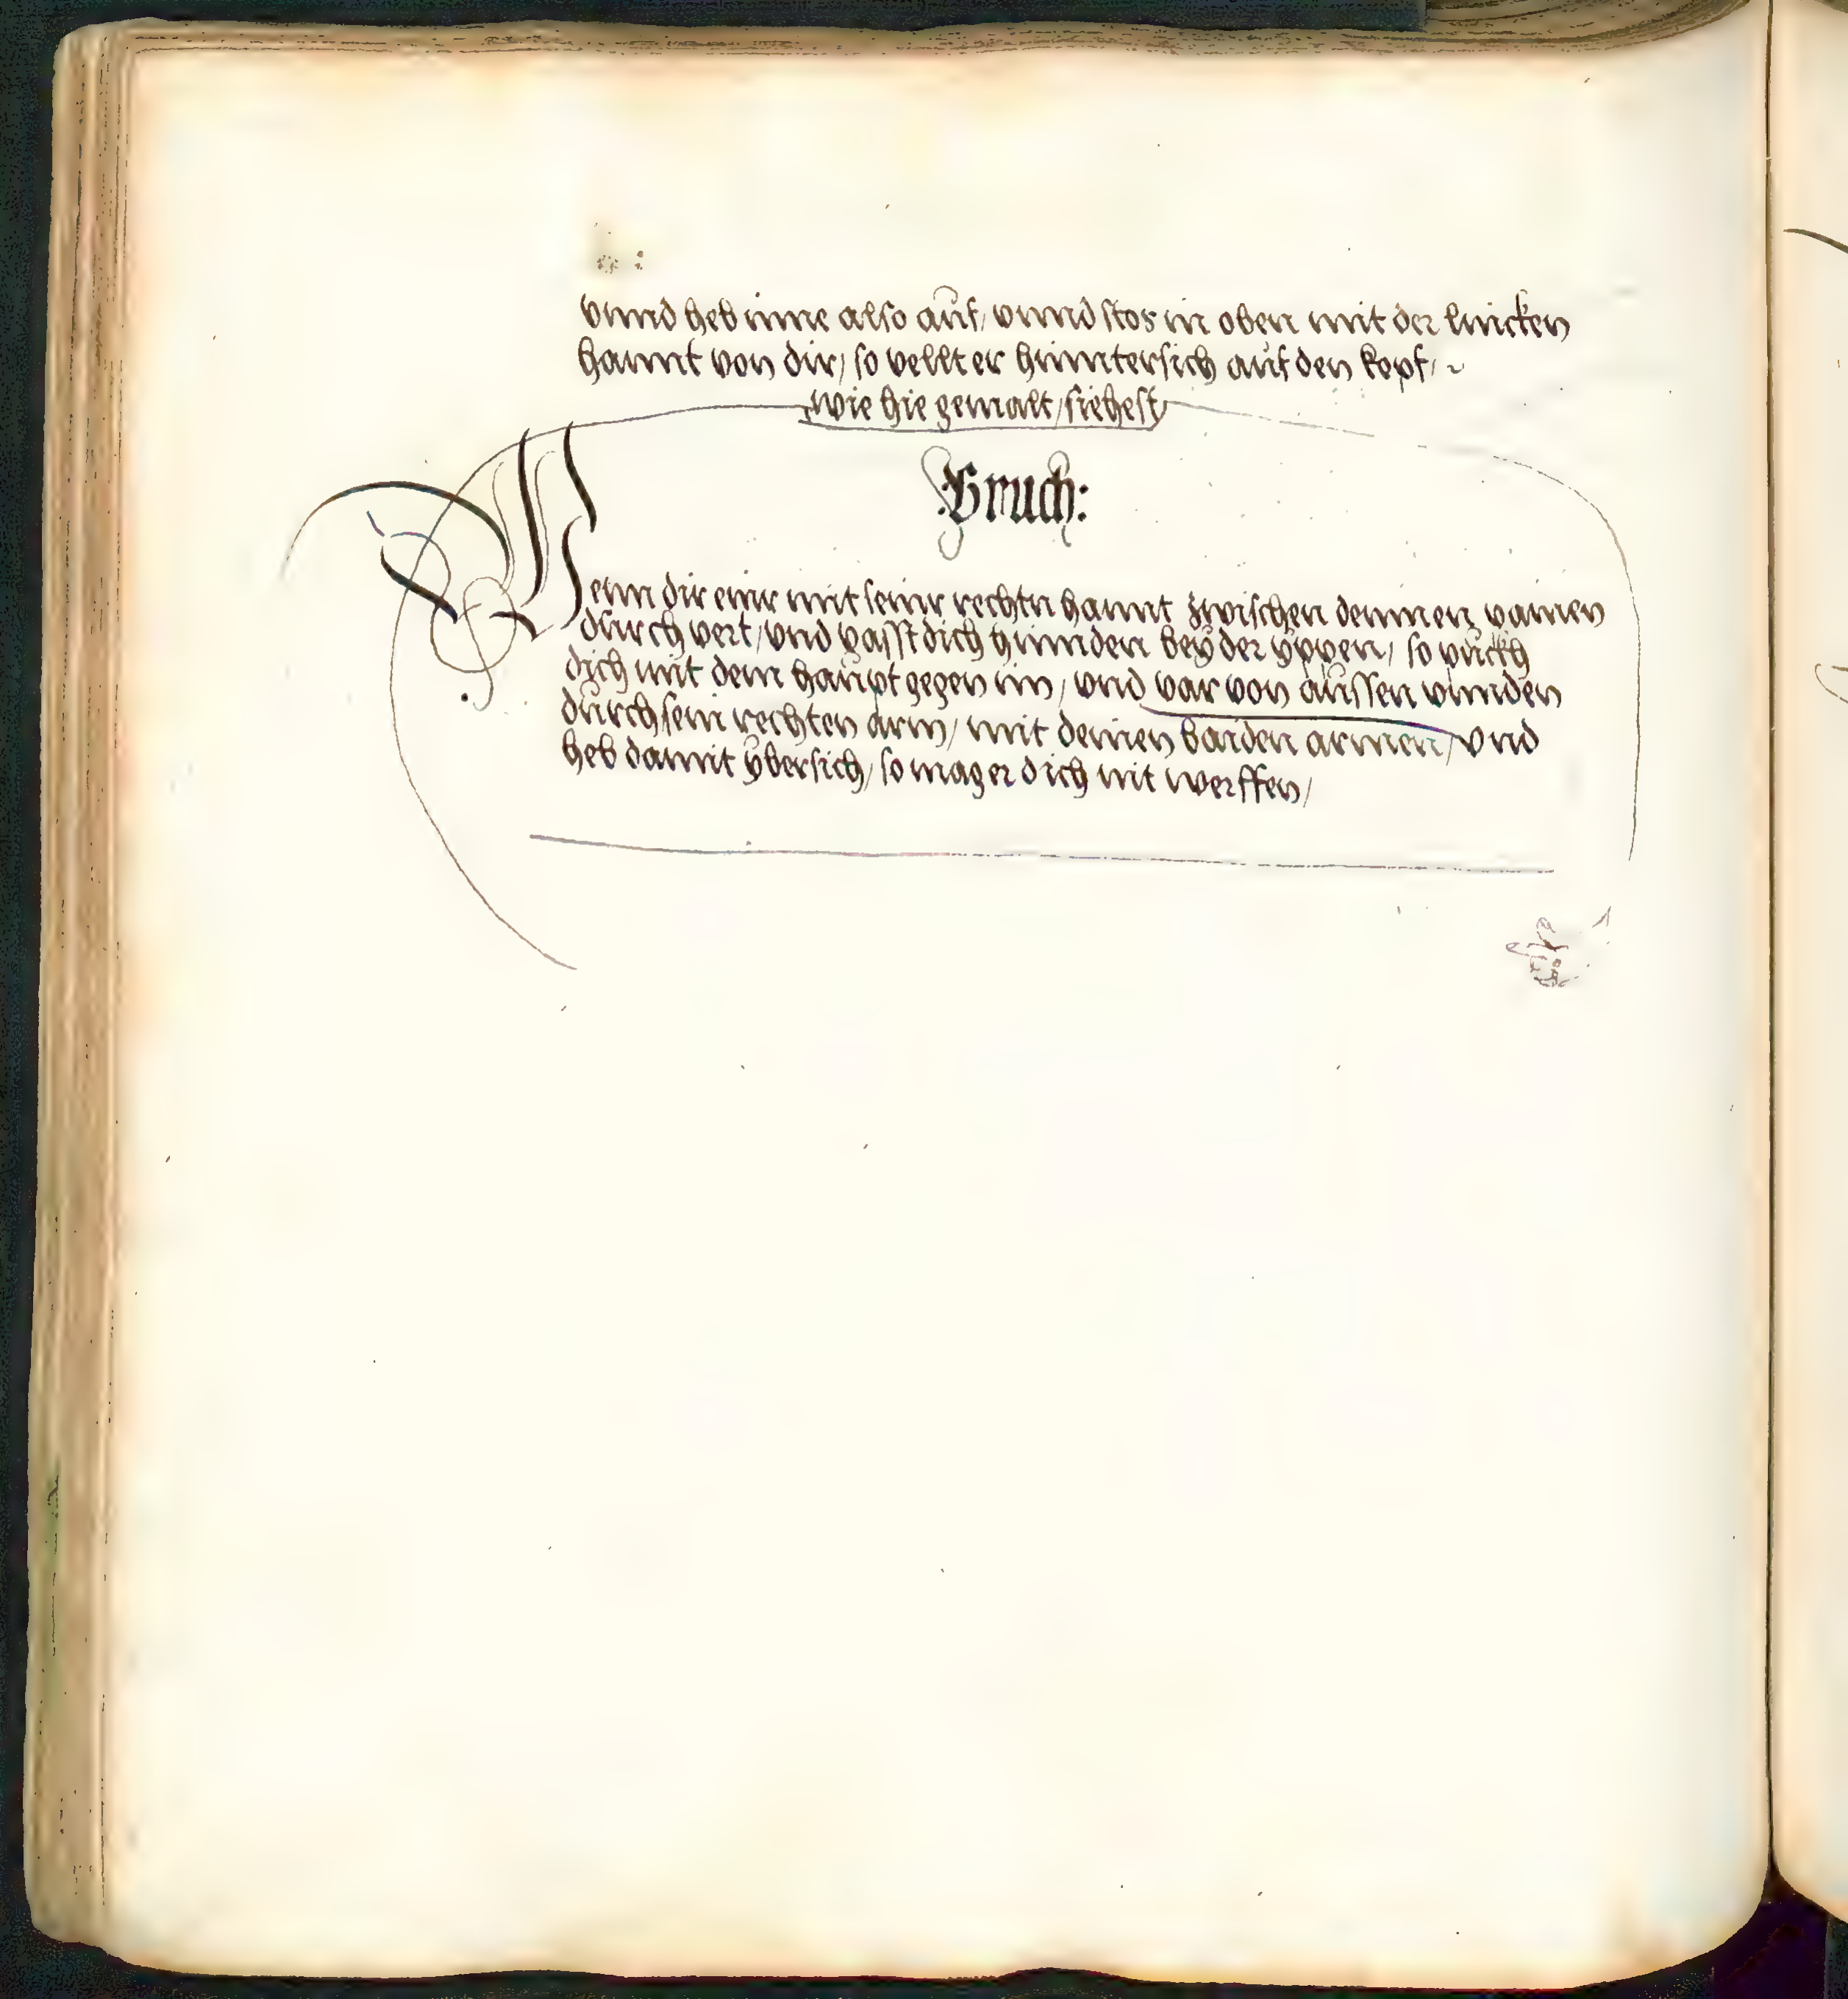 vnnd heb inne also auf, vnnd stos in oben mit der lincken
hannt von dir, so vellt er hinntersich auf den kopf,
wie hie gemalt, siehest
Bruch:
Wenn dir einr mit seinr rechtn hannt zwischen deinnen painen
durch vert, vnd vasst dich hinnden bey der yppen, so puckh
dich mit dem haupt gegen im, vnd var von aussen vnnden
durch sein rechten arm, mit deinen baiden armen, vnd
heb damit vbersich, so mag er dich nit werffen,